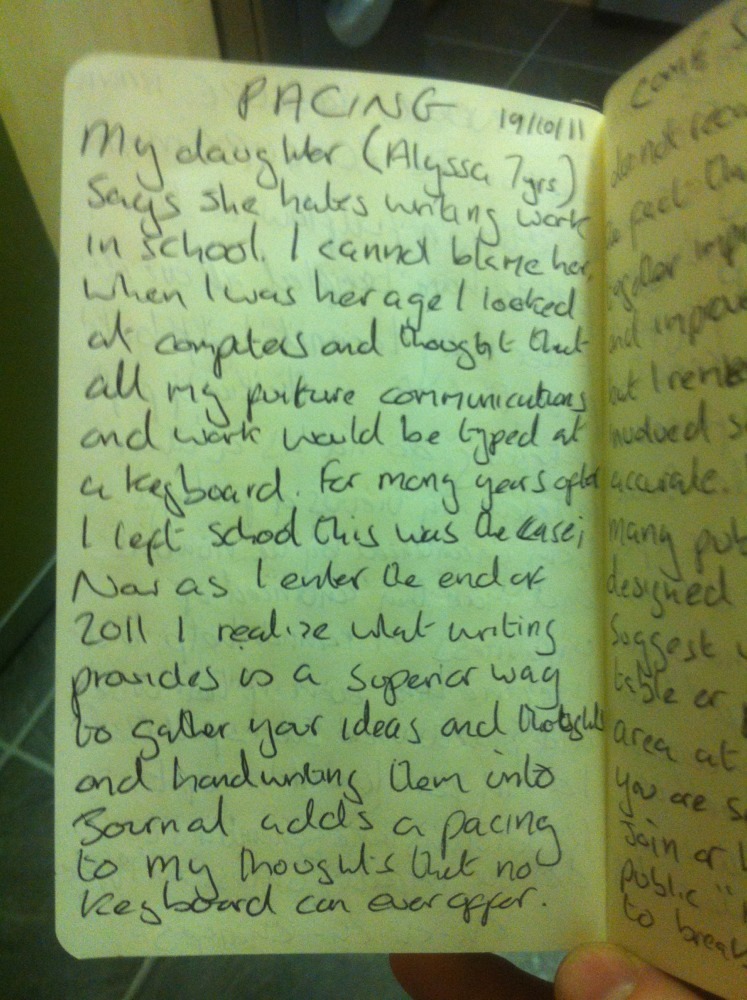 PACING
19/10/11
My daughter (Alyssa 7yrs)
Says she hates writing work
in school. I cannot blame her.
When I was her age I looked
at computers and thought that
all my furture communications
and work would be typed at
a keyboard. For many years after
I left school this was the case;
Now as I enter the end of
2011 I realize what writing
provides is a superior way
to gather your ideas and thoughts
and handwriting them into
Journal adds a pacing
to my thoughts that no
keyboard can ever offer.
COME
do not
fact
together
and
but I
involved
accurate.
many
designed
Suggest
table or
area at
you are
Join or
public "
to break